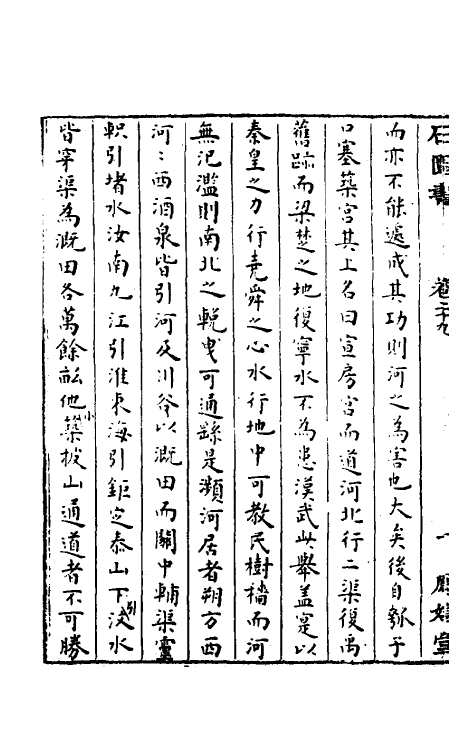 石匱書 卷二十九 一 鳳嬉堂
而亦不能遽成其功則河之為害也大矣後自瓠子
口塞築宮其上名曰宣房宮而道河北行二渠復禹
舊跡而梁楚之地復寧水不為患漢武此舉盖寔以
秦皇之力行堯舜之心水行地中可教民樹檣而河
無汜濫則南北之輓曳可通繇是瀕河居者朔方西
河:西酒泉皆引河及川谷以溉田而關中輔渠靈
軹引堵水汝南九江引淮東海引鉅定泰山下引汶水
皆穿渠為溉田各萬餘畝他小築披山通道者不可勝